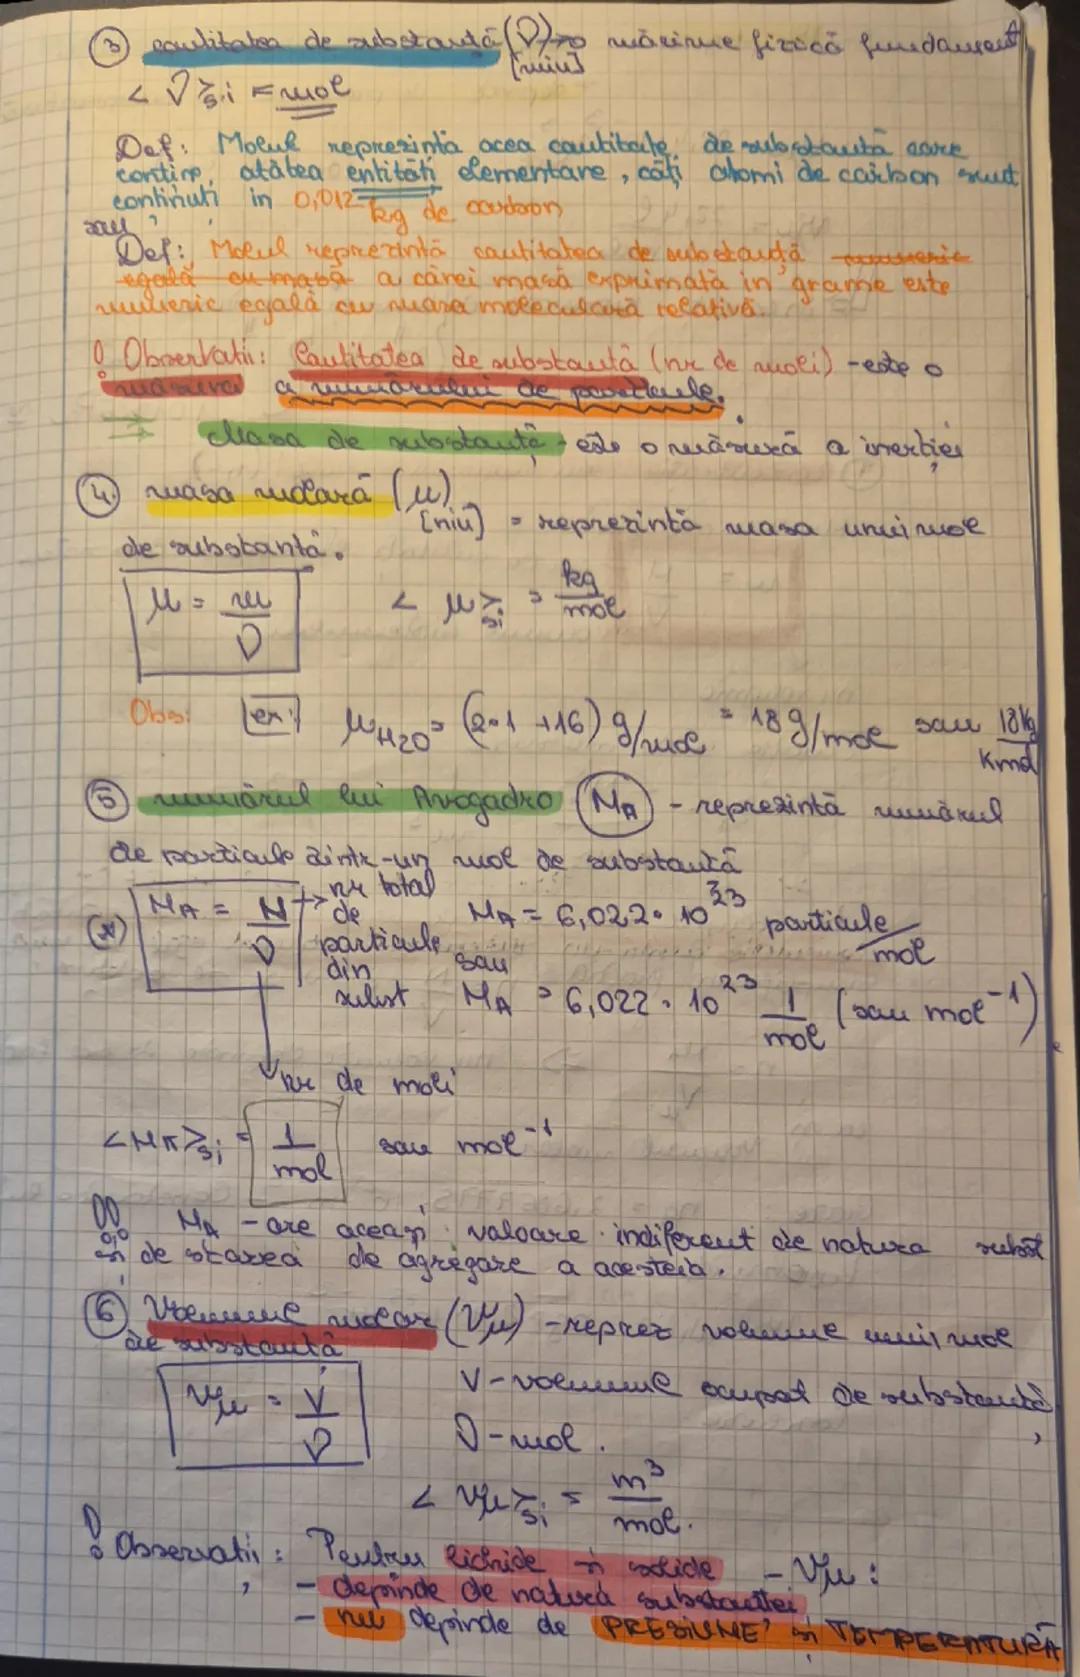 ③ cantitatea de substanță (ν) → mărime fizică fundament
[niu]
< ν >s.i = mol
Def: Molul reprezintă acea cantitate de substanță care
conține atâtea entități elementare, câți atomi de carbon sunt
continuți in 0,012 kg de carbon
sau
Def: Molul reprezintă cantitatea de substanță numeric
egală cu masă a cărei masă exprimată în grame este
numeric egală cu masa moleculară relativă.
! Observații: Cantitatea de substanță (nr de moli) - este o
măsură a numărului de particule.
⇒ Masa de substanță - este o măsură a inerției
④ masa molară (μ)
[niu] = reprezintă masa unui mol
de substanță.
μ = m/ν < μ >si = kg/mol
Obs: ex: μH2O = (2·1 +16) g/mol = 18 g/mol sau 18kg/Kmol
⑤ numărul lui Avogadro (NA) - reprezintă numărul
de particule dintr-un mol de substanță
(*) NA = N/ν → nr total de particule din subst
NA = 6,022 · 10^23 particule/mol
sau
NA = 6,022 · 10^23 1/mol (sau mol^-1)
nr de moli
<NA>si = 1/mol sau mol^-1
!! NA - are aceași valoare indiferent de natura subst
și de starea de agregare a acesteia.
⑥ Volumul molar (Vμ) - reprez volumul unui mol
de substanță
Vμ = V/ν V - volumul ocupat de substanță
ν - mol.
< Vμ >si = m^3/mol.
! Observații: Pentru lichide și solide - Vμ:
- depinde de natura substanței
- nu depinde de PRESIUNE și TEMPERATURĂ